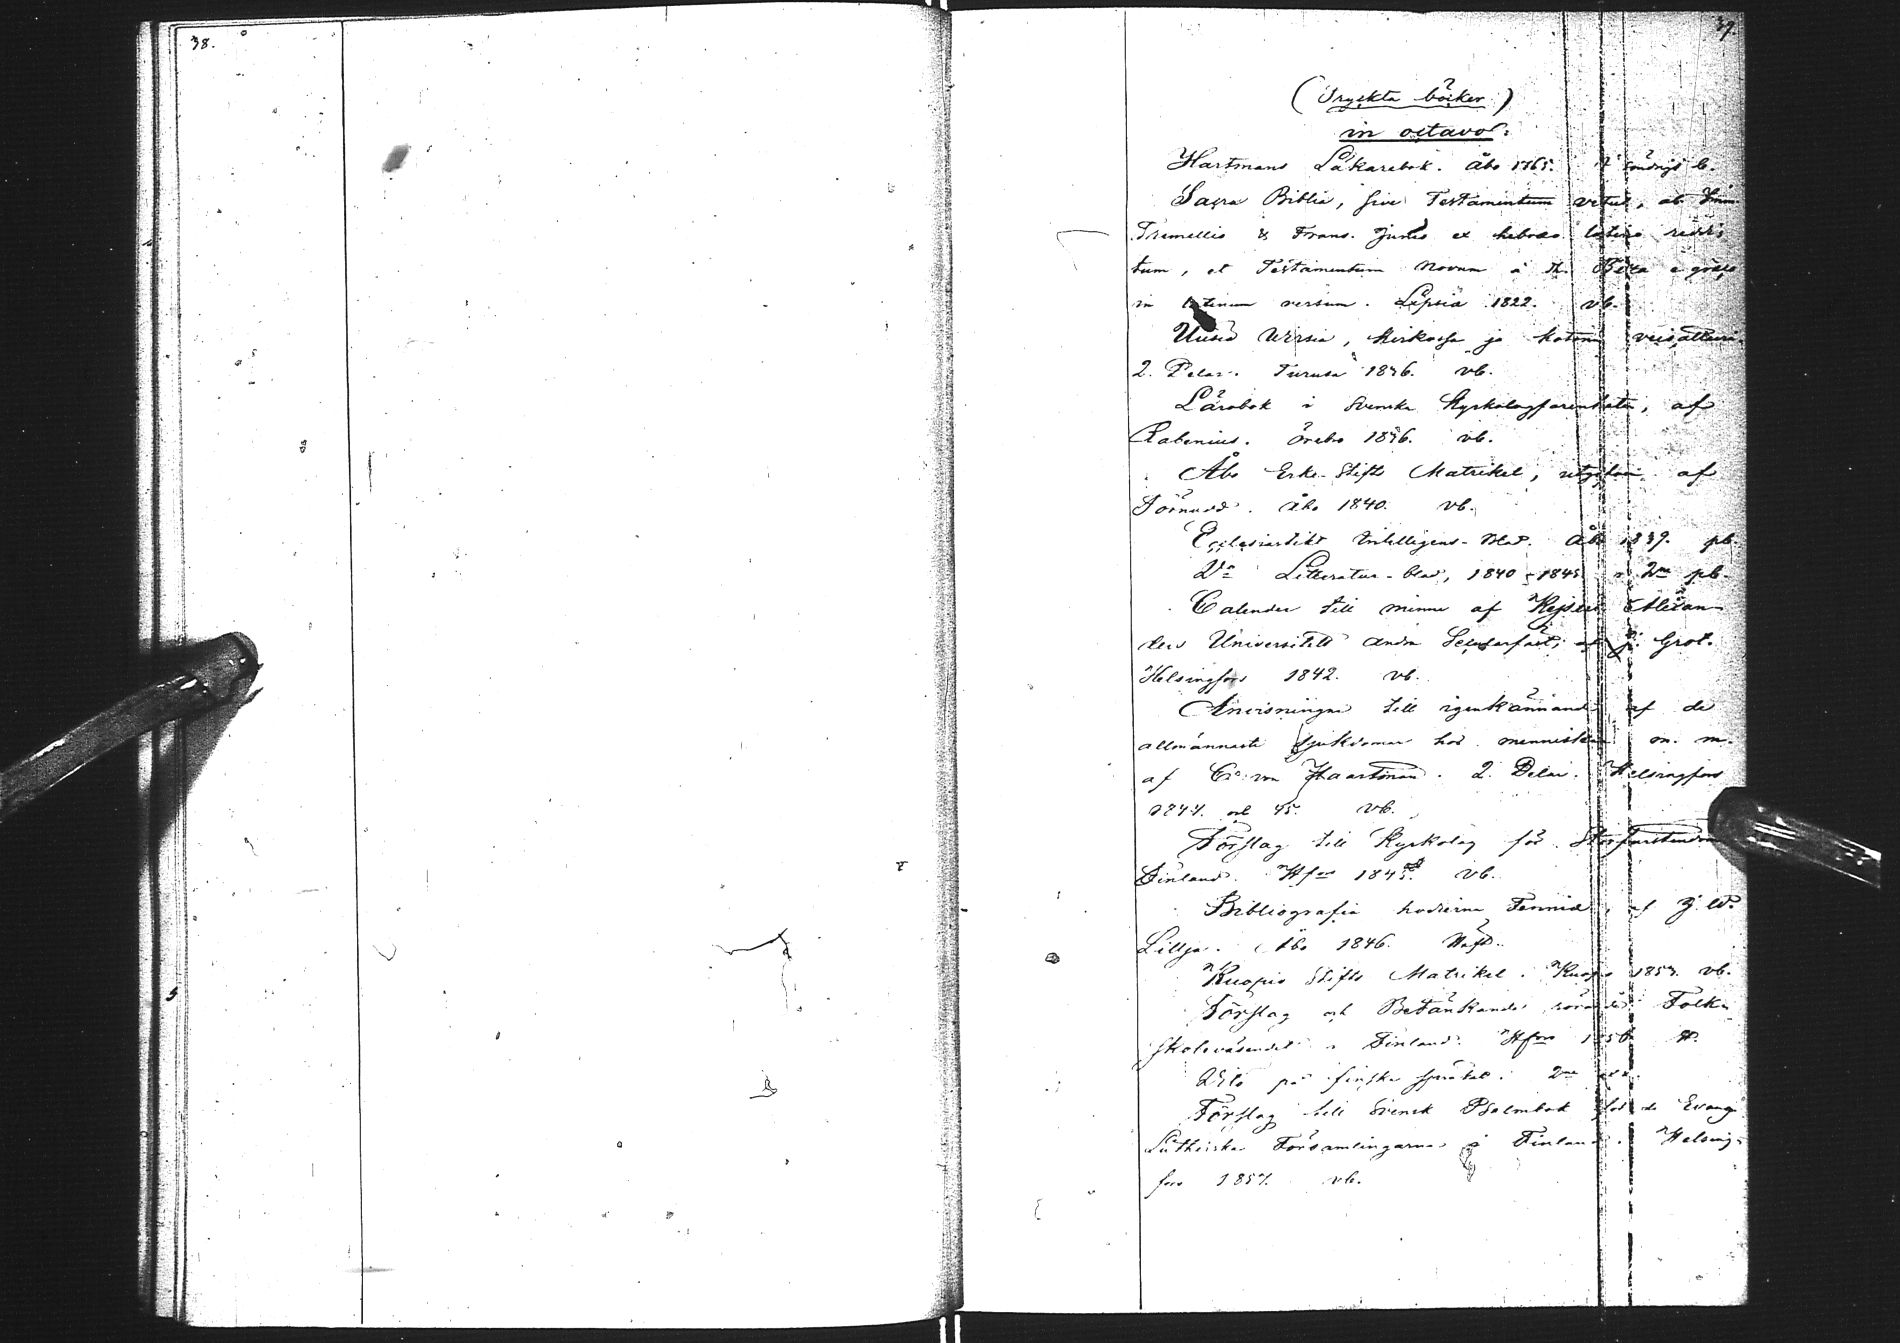 38.
39.
(Tryckta böcker)
in octavo.
Hartmans Läkarebok. Åbo 1765.
Sacra Biblia, sive Testamentum vetus, ab Im.
Tremellio & Franc. Junio ex hebræo latine reddi-
tum, et Testamentum Novum à Th. Beza e græco
in latinum versum. Lipsiæ 1822. vb.
Uusia Virsiä, Kirkossa ja kotona veisattavia.
2. Delar. Turusa 1836. vb.
Lärobok i Svenska Kyrkolagfarenheten, af
Rabenius. Örebro 1836. vb.
Åbo Erke-Stifts Matrikel, utgifven af
Törnudd. Åbo 1840. vb.
Ecclesiastikt Intelligens-Blad. Åbo 1839. pb.
Do Litteratur-blad, 1840-1845 pb.
Calender till minne af Kejserl. Alexan-
ders Universitetets andra Secularfest, af J. Grot.
Helsingfors 1842. vb.
Anvisningar till igenkännande af de
allmännaste sjukdomar hos menniskan m. m.
af C. von Haartman. 2. Delar. Helsingfors
1844. och 45. vb.
Förslag till Kyrkolag för Storfurstendömet
Finland. Hfors 1845. vb.
Bibliografia hodierna Fennica, af J. W.
Lillja. Åbo 1846. Häft.
Kuopio Stifts Matrikel. Kuopio 1857. vb.
Förslag och Betänkande rörande Folk-
skoleväsendet i Finland. Hfors 1856 H.
Dito på finska språket.
Förslag till Svensk Psalmbok för de Evang.
Lutherska Församlingarna i Finland. Helsing-
fors 1857. vb.